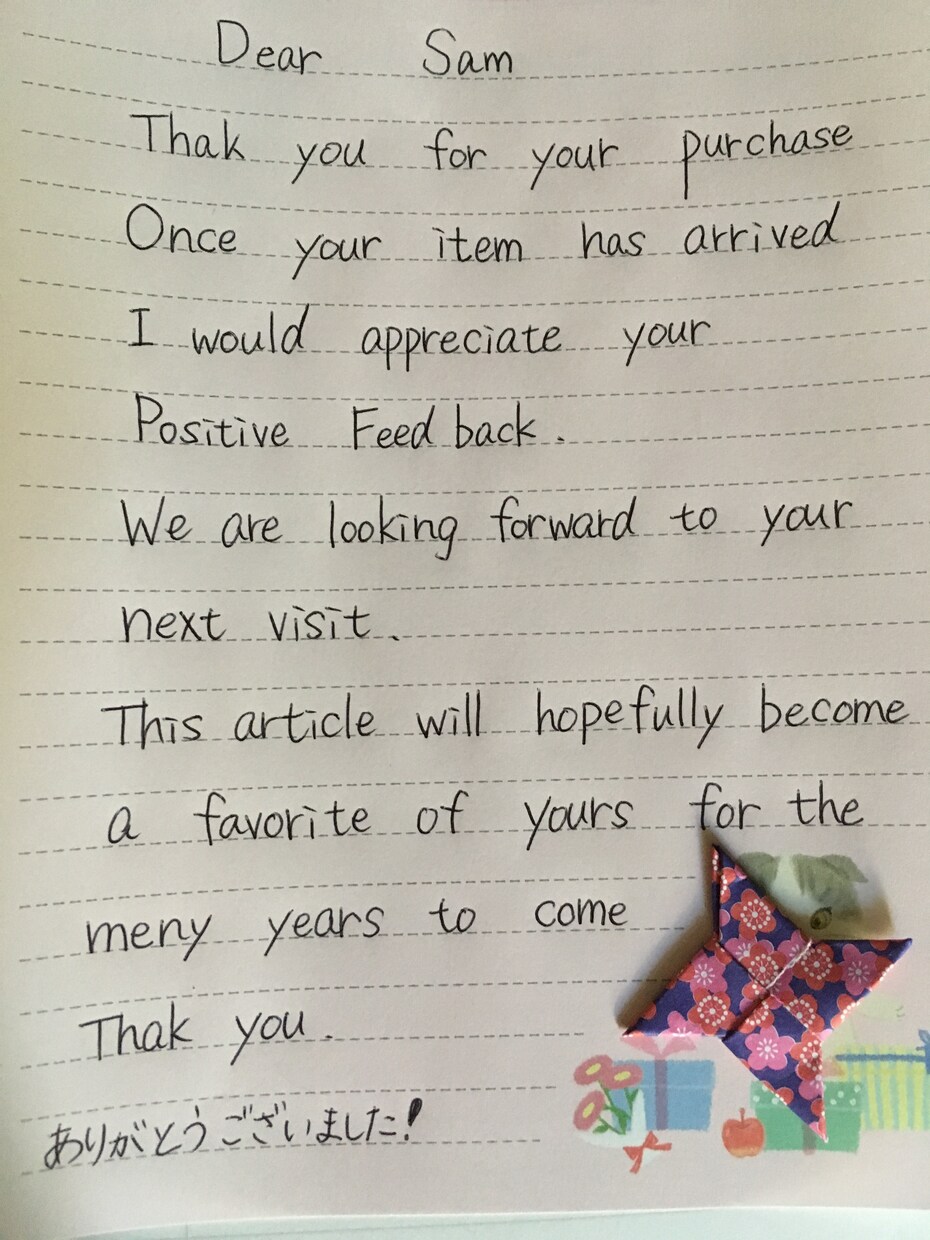 Dear Sam
Thak you for your purchase
Once your item has arrived
I would appreciate your
Positive Feed back.
We are looking forward to your
next visit.
This article will hopefully become
a favorite of yours for the
meny years to come
Thak you.
ありがとうございました!